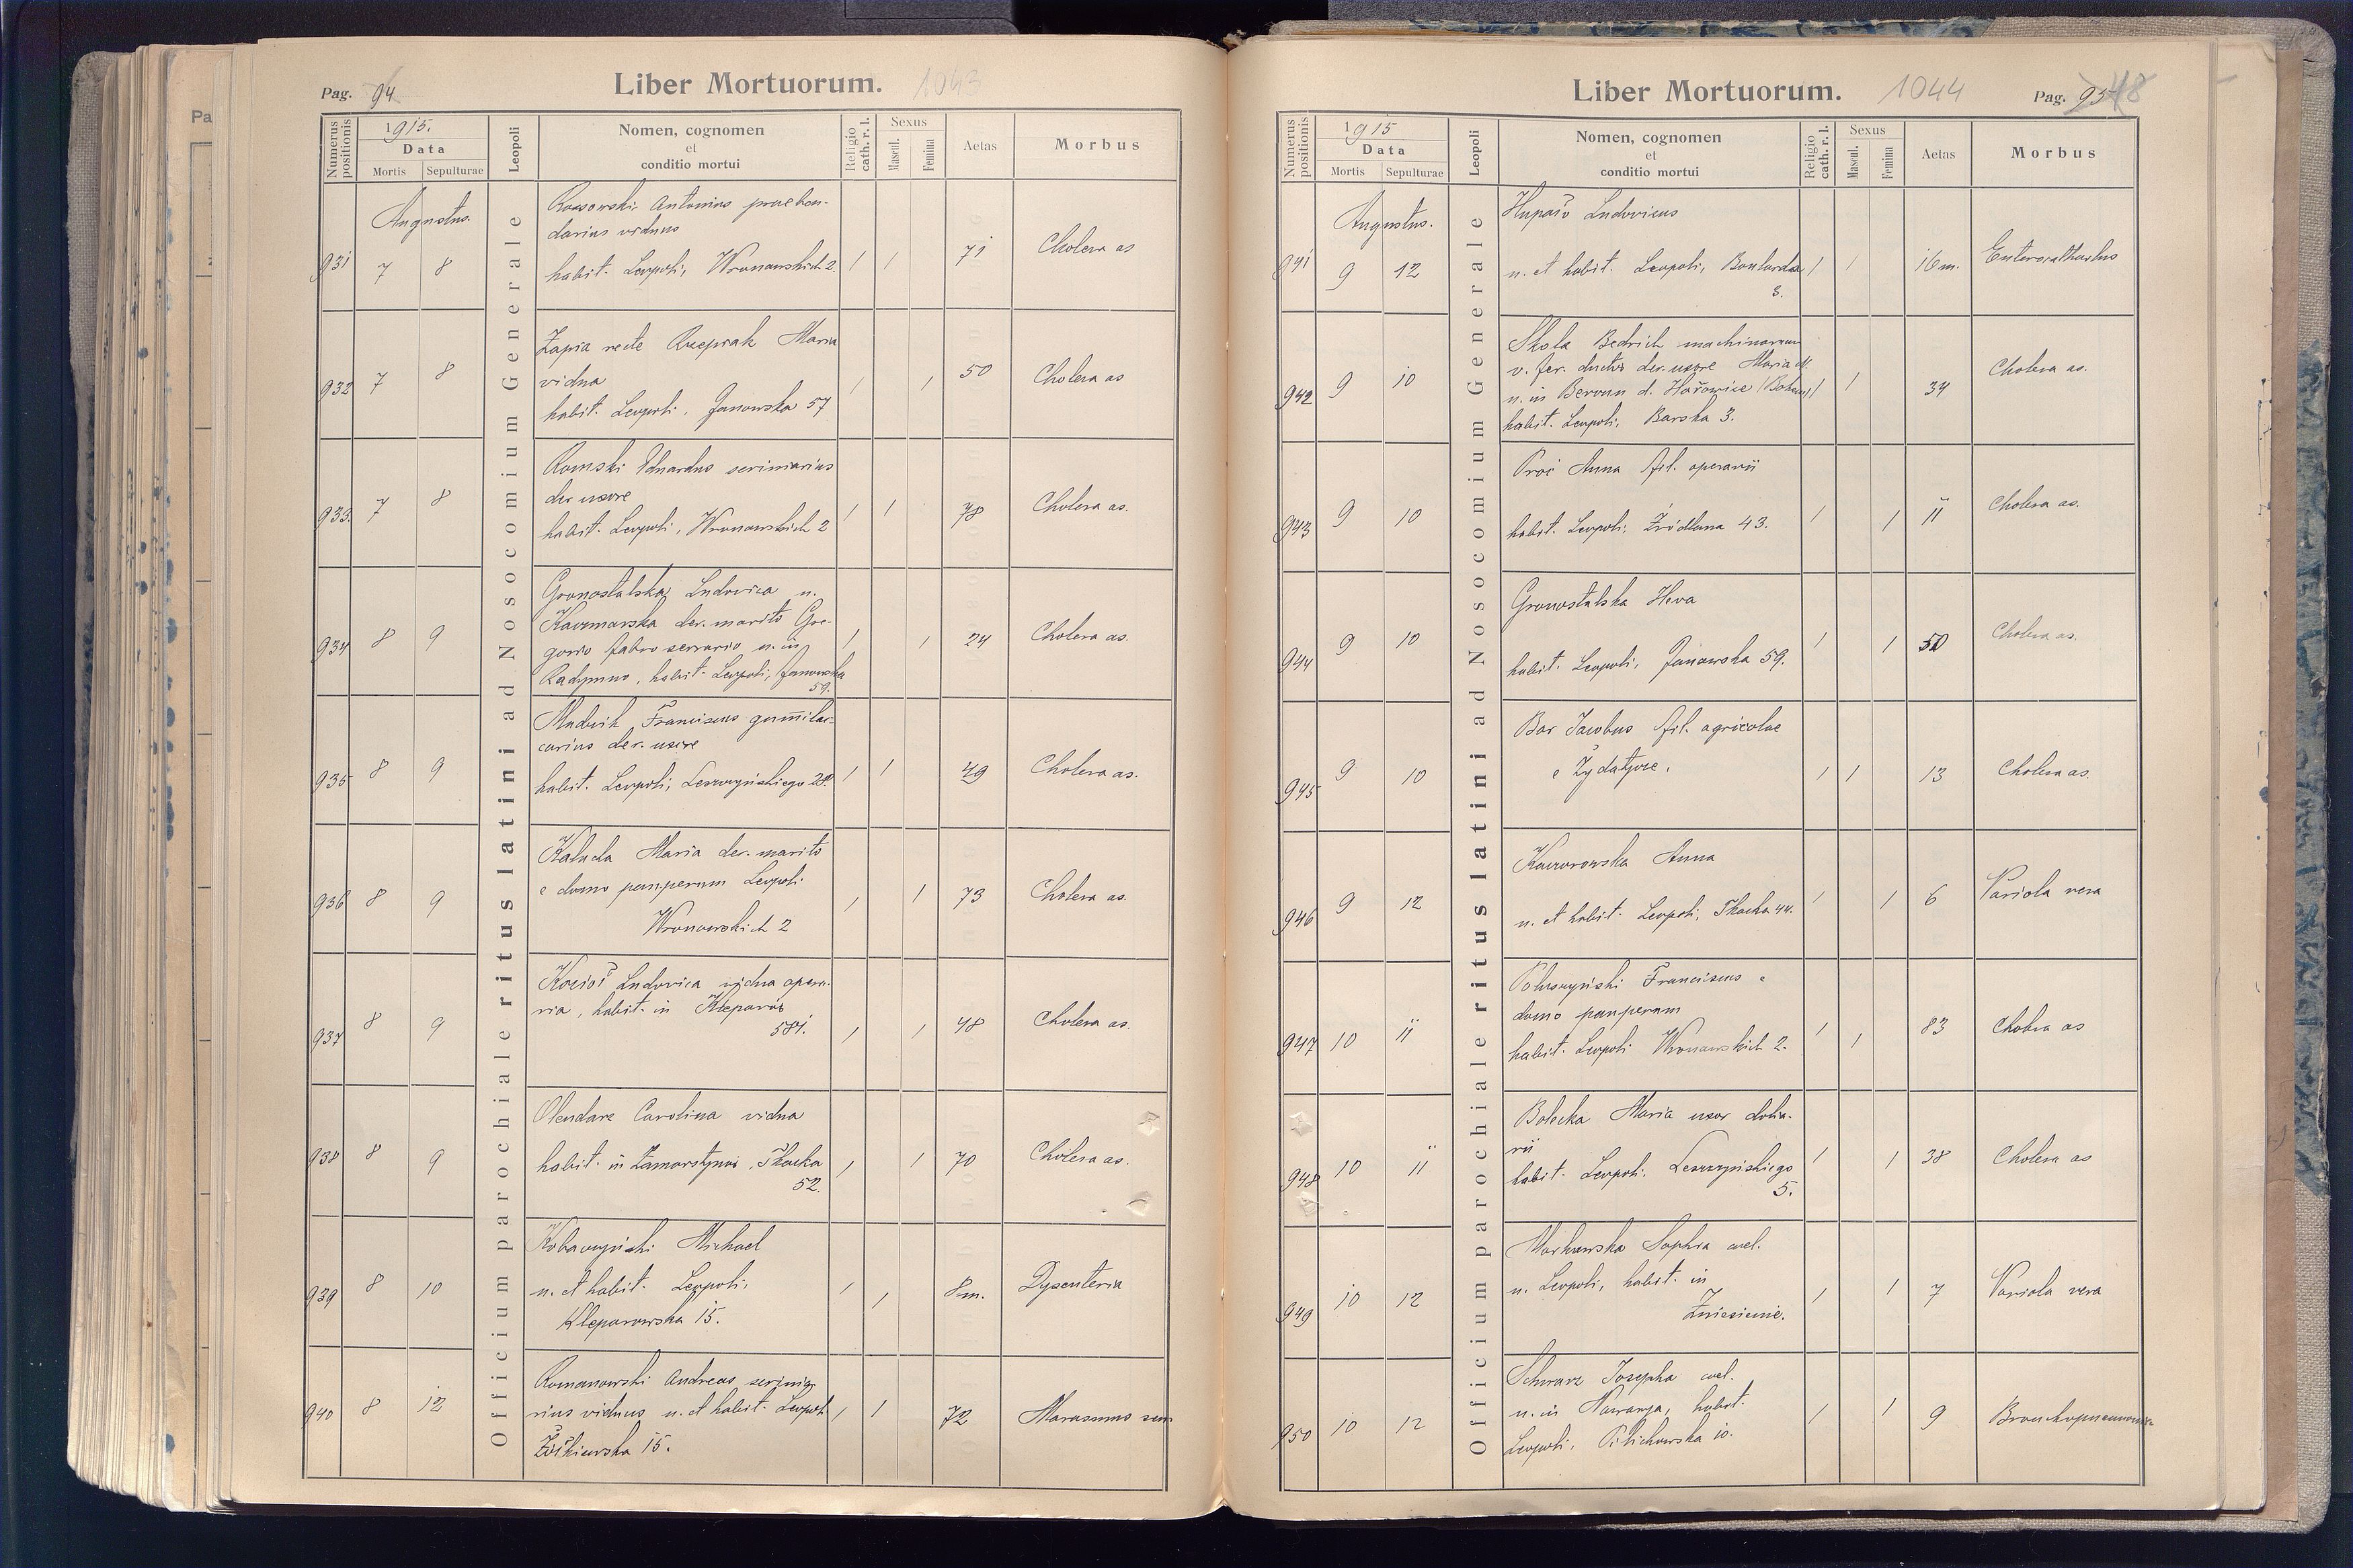 Pag. 94
Liber Mortuorum.
1043
Numerus positionis
1915.
Data
Mortis
Sepulturae
Leopoli
Nomen, cognomen
et
conditio mortui
Religio cath. r. l.
Sexus
Mascul.
Femina
Aetas
Morbus
Officium parochiale ritus latini ad Nosocomium Generale
Augustus.
931 7 8
Rossowski Antonius praeben-
darius viduus
habit. Leopoli, Wronowskich 2.
1 1 71 Cholera as
932 7 8
Zapia recte Rzepiak Maria
vidua
habit. Leopoli, Janowska 57
1 1 50 Cholera as
933. 7 8
Romski Eduardus scriniarius
der. uxore
habit. Leopoli, Wronowskich 2
1 1 78 Cholera as.
934 8 9
Gronostalska Ludovica n.
Kaczmarska der. marito Gre-
gorio fabro serrario n. in
Radymno, habit. Leopoli, Janowska
59.
1 1 24 Cholera as.
935 8 9
Franciscus
carius der. uxore
habit. Leopoli, Leszczyńskiego 28.
1 1 49 Cholera as.
936 8 9
Kaluda Maria der. marito
e domo pauperum Leopoli
Wronowskich 2
1 1 73 Cholera as.
937 8 9
Ludovica vidua opera-
ria, habit. in Kleparów
581.
1 1 48 Cholera as.
938 8 9
Olendarz Carolina vidua
habit. in Zamarstynów, Tkacka
52.
1 1 70 Cholera as.
939 8 10
Michael
n. et habit. Leopoli,
Kleparowska 15.
1 1 8 m. Dysenteria
940 8 12
Romanowski Andreas scrinia-
rius viduus n. et habit. Leopoli
Żółkiewska 15.
1 1 72 Marasmus sen.
Liber Mortuorum.
1044
Pag. 95
48
Numerus positionis
1915
Data
Mortis
Sepulturae
Leopoli
Nomen, cognomen
et
conditio mortui
Religio cath. r. l.
Sexus
Mascul.
Femina
Aetas
Morbus
Officium parochiale ritus latini ad Nosocomium Generale
Augustus.
941 9 12
Ludovicus
n. et habit. Leopoli, Boularda
3.
1 1 16 m. Enterocatharhus
942 9 10
Skola Bedrich machinarum
v. fer. ductor der. uxore Maria
n. in Beroun d. Hořowice (Bohem.)
habit. Leopoli, Barska 3.
1 1 34 Cholera as.
943 9 10
Proć Anna fil. operarii
habit. Leopoli, Źródlana 43.
1 1 11 Cholera as.
944 9 10
Gronostalska Heva
habit. Leopoli, Janowska 59.
1 1 50 Cholera as.
945 9 10
Bar Jacobus fil. agricolae
e Żydatycze.
1 1 13 Cholera as.
946 9 12
Kaczorowska Anna
n. et habit. Leopoli, Tkacka 44.
1 1 6 Variola vera
947 10 11
Franciscus e
domo pauperum
habit. Leopoli Wronowskich 2.
1 1 83 Cholera as
948 10 11
Bolecka Maria uxor dolia-
rii
habit. Leopoli, Leszczyńskiego
5.
1 1 38 Cholera as
949 10 12
Markowska Sophia cael.
n. Leopoli, habit. in
Zniesienie.
1 1 7 Variola vera
950 10 12
Schwarz Josepha cael.
n. in Nawarya, habit.
Leopoli, Pilichowska 10.
1 1 9 Bronchopneumonia